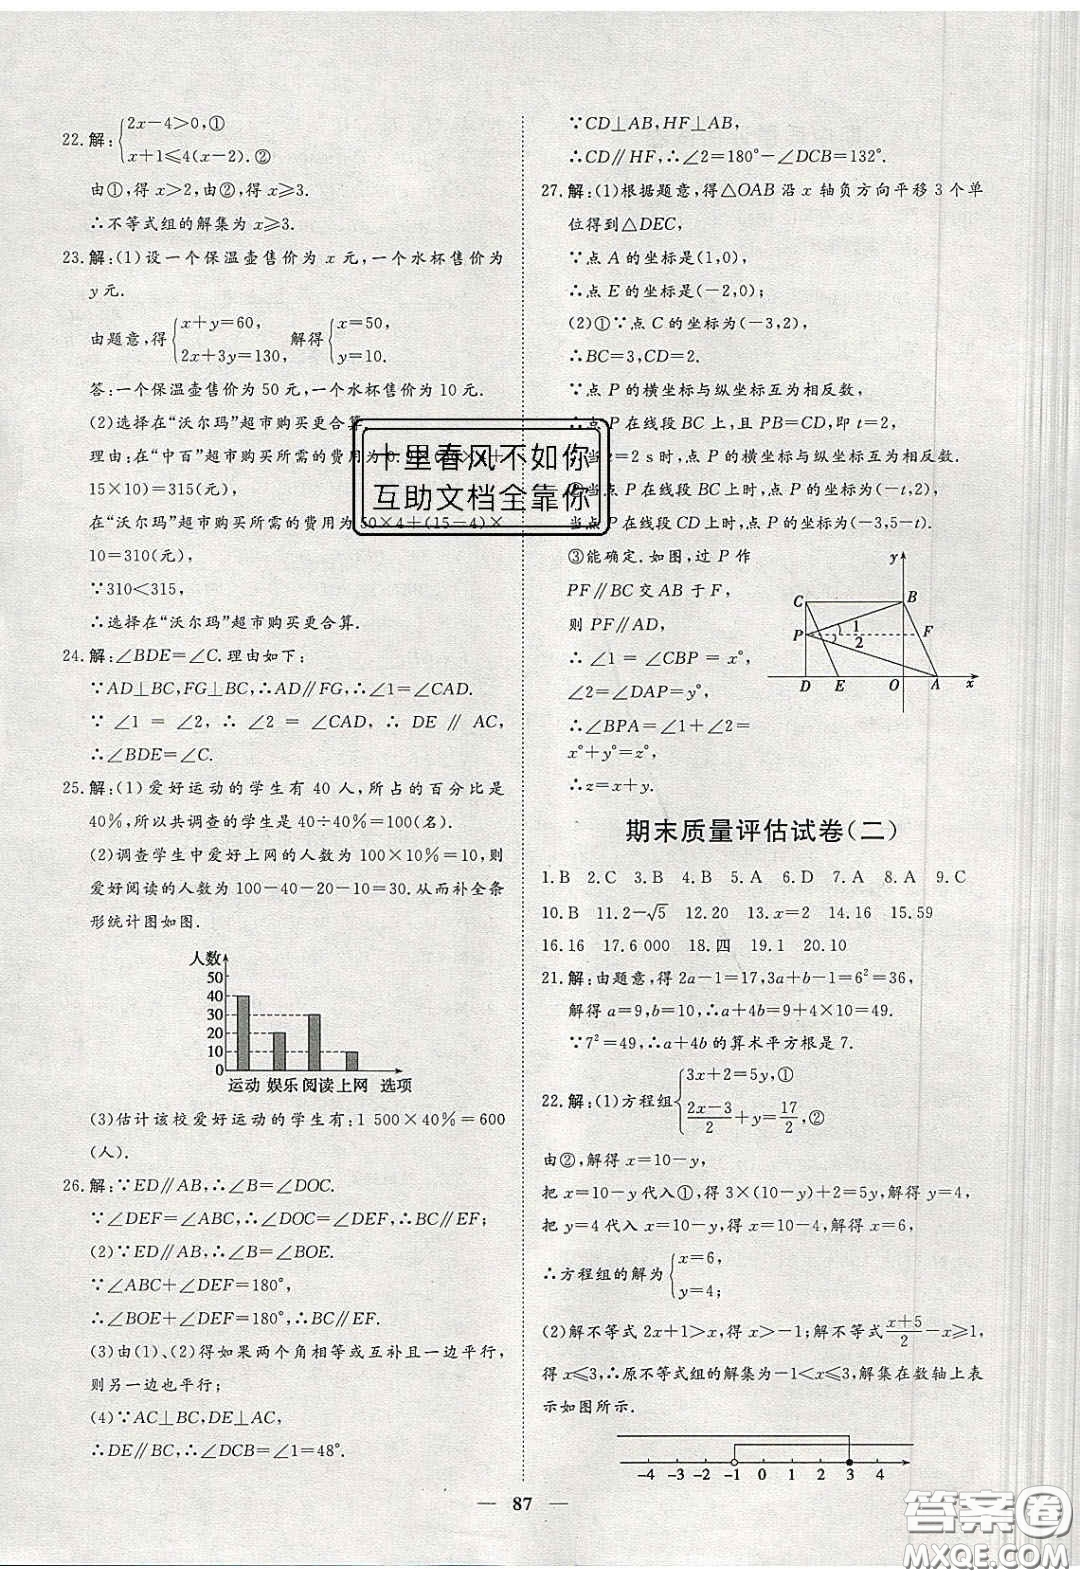 22. 解:{2x－4＞0,①
x＋1⩽4(x－2).②
由①,得 x＞2,由②,得 x⩾3.
∴不等式组的解集为 x⩾3.
23. 解:(1)设一个保温壶售价为 x 元,一个水杯售价为
y元.
由题意,得{x＋y＝60, 解得{x＝50,
2x＋3y＝130, y＝10.
答:一个保温壶售价为 50 元,一个水杯售价为 10 元.
(2)选择在“沃尔玛”超市购买更合算.
理由:在“中百”超市购买所需的费用为
15×10)＝315(元),
在“沃尔玛”超市购买所需的费用为 50×4＋(15－4)×
10＝310(元),
∵310＜315,
∴选择在“沃尔玛”超市购买更合算.
24. 解:∠BDE＝∠C.理由如下:
∵AD⊥BC,FG⊥BC,∴AD∥FG,∴∠1＝∠CAD.
∵ ∠1 ＝ ∠2, ∴ ∠2 ＝ ∠CAD, ∴ DE ∥ AC,
∴∠BDE＝∠C.
25. 解:(1)爱好运动的学生有 40 人,所占的百分比是
40%,所以共调查的学生是 40÷40%＝100(名).
(2)调查学生中爱好上网的人数为 100×10%＝10,则
爱好阅读的人数为 100－40－20－10＝30.从而补全条
形统计图如图.
人数
50
40
30
20
10
0
运动 娱乐 阅读 上网 选项
(3)估计该校爱好运动的学生有:1 500×40%＝600
(人).
26. 解:∵ED∥AB,∴∠B＝∠DOC.
∵∠DEF＝∠ABC,∴∠DOC＝∠DEF,∴BC∥EF;
(2)∵ED∥AB,∴∠B＝∠BOE.
∵∠ABC＋∠DEF＝180°,
∴∠BOE＋∠DEF＝180°,∴BC∥EF.
(3)由(1)、(2)得如果两个角相等或互补且一边平行,
则另一边也平行;
(4)∵AC⊥BC,DE⊥AC,
∴DE∥BC,∴∠DCB＝∠1＝48°.
∵CD⊥AB,HF⊥AB,
∴CD∥HF,∴∠2＝180°－∠DCB＝132°.
27. 解:(1)根据题意,得△OAB 沿 x 轴负方向平移 3 个单
位得到△DEC,
∵点 A 的坐标是(1,0),
∴点 E 的坐标是(－2,0);
(2)①∵点 C 的坐标为(－3,2),
∴BC＝3,CD＝2.
∵点 P 的横坐标与纵坐标互为相反数,
∴点 P 在线段 BC 上,且 PB＝CD,即 t＝2,
∴当 t＝2 s时,点 P 的横坐标与纵坐标互为相反数.
②当点 P 在线段 BC 上时,点 P 的坐标为(－t,2),
当点 P 在线段 CD 上时,点 P 的坐标为(－3,5－t).
③能确定.如图,过 P 作
PF∥BC 交 AB 于 F,
则 PF∥AD,
∴ ∠1 ＝ ∠CBP ＝ x°,
∠2＝∠DAP＝y°,
∴∠BPA＝∠1＋∠2＝
x°＋y°＝z°,
∴z＝x＋y.
y
C B
P 1 F
2
D E O A x
期末质量评估试卷(二)
1.B 2.C 3.B 4.B 5.A 6.D 7.A 8.A 9.C
10.B 11.2－√5 12.20 13.x＝2 14.16 15.59
16.16 17.6 000 18.四 19.1 20.10
21. 解:由题意,得 2a－1＝17,3a＋b－1＝6²＝36,
解得 a＝9,b＝10,∴a＋4b＝9＋4×10＝49.
∵7²＝49,∴a＋4b 的算术平方根是 7.
22. 解:(1)方程组{3x＋2＝5y,①
(2x－3)/2＋y＝17/2,②
由②,解得 x＝10－y,
把 x＝10－y代入①,得 3×(10－y)＋2＝5y,解得y＝4,
把 y＝4 代入 x＝10－y,得 x＝10－4,解得 x＝6,
∴方程组的解为{x＝6,
y＝4;
(2)解不等式 2x＋1＞x,得 x＞－1;解不等式(x＋5)/2－x⩾1,
得 x⩽3,∴原不等式组的解集为－1＜x⩽3,解集在数轴上表
示如图所示.
－4 －3 －2 －1 0 1 2 3 4
87
十里春风不如你
互助文档全靠你
答案圈
MXQE.COM